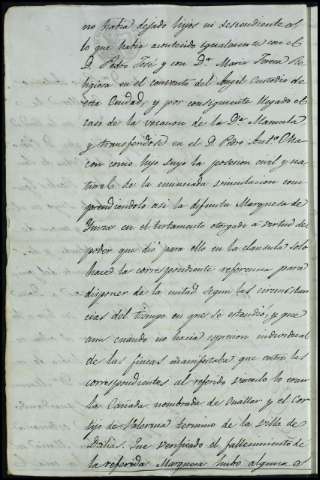 no habia dejado hijos ni descendiente a
lo que habia acontecido igualmente con el
D. Pedro José y con Dª Maria Teresa Re-
ligiosa en el convento del Angel Custodio de
esta Ciudad, y por consiguiente llegado el
caso de la vacacion de la Dª Manuela
y transfiriendose en el D. Pedro Antº
con como hijo suyo la posesion civil y na-
tural de la enunciada vinculacion com-
prendiendolo asi la difunta Marquesa de
en el testamento otorgado a virtud del
poder que dió para ello en la clausula solo
hace la correspondiente referencia para
disponer de la mitad segun las circunstan-
cias del tiempo en que se estendio, y que
aun cuando no hacia espresion individual
de las fincas manifestaba que entre las
correspondientes al referido vinculo lo eran
la Cañada nombrada de Cuallar y el Cor-
tijo de termino de la Villa de
Dalias. Que verificado el fallecimiento de
la referida Marquesa hubo algunas